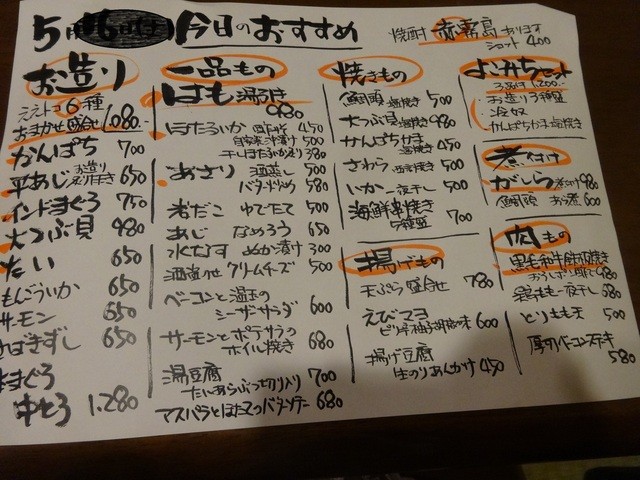 5月16日(土)
今日のおすすめ
焼酎 赤霧島 あります
ショット 400
お造り
ええトコ6種
おまかせ盛合せ 1,080.
かんぱち 700
平あじ お造り 650
インドまぐろ 750
大つぶ貝 980
たい 650
もんごういか 650
サーモン 650
きずし 650
まぐろ
中とろ 1,280
一品もの
はも湯引き 980
ほたるいか 450
自家製沖漬け 500
干しほたるいか炙り 380
あさり 酒蒸し 500
バター炒め 580
岩だこ ゆでたて 500
あじ なめろう 650
水なす ぬか漬け 300
クリームチーズ 500
ベーコンと温玉の
シーザーサラダ 600
サーモンとポテサラの
ホイル焼き 680
湯豆腐
たいあらぶつ切り入り 700
アスパラとほたてのバターソテー 680
焼きもの
鯛頭 塩焼き 500
大つぶ貝 塩焼き 980
かんぱちかま 塩焼き 450
さわら 塩焼き 500
いか一夜干し 500
海鮮串焼き
5種盛 700
揚げもの
天ぷら盛合せ 780
えびマヨ
ピリ辛柚子胡椒味 600
揚げ豆腐
生のりあんかけ 450
よこみちセット
1,200.
お造り3種盛
冷奴
かんぱちかま塩焼き
煮付け
ガシラ 煮付け 980
鯛頭 お酒 600
肉もの
黒毛和牛鉄板焼き
おろしポン酢で 980
鶏もも一夜干し 680
とりもも天 500
厚切りベーコンステーキ
580